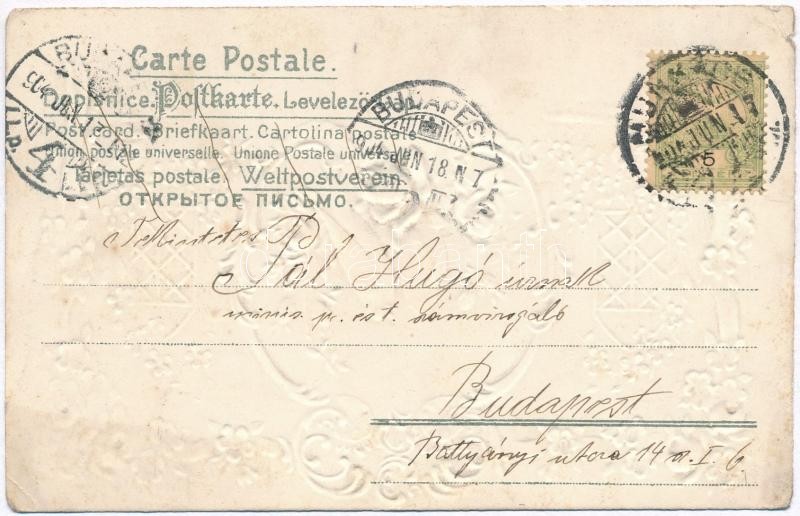 Carte Postale.
Dopisnice. Postkarte. Levelező-Lap.
Post card. Briefkaart. Cartolina postale
Union postale universelle. Unione Postale universale
Tarjetas postale. Weltpostverein.
ОТКРЫТОЕ ПИСЬМО.
BUDAPEST
904 JUN 18. N 7
5
Tekintetes
Pál Hugó úrnak
minis. p. ést. számvizsgáló
Budapest
Battyányi utcza 14 a. I. 6.